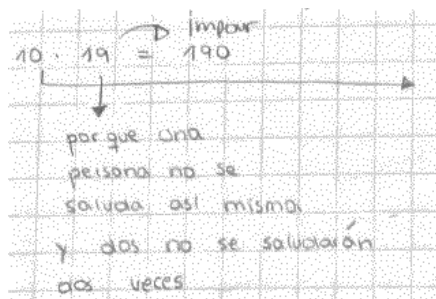 impar
10 · 19 = 190
por que una
persona no se
saluda así misma
y dos no se saludarán
dos veces